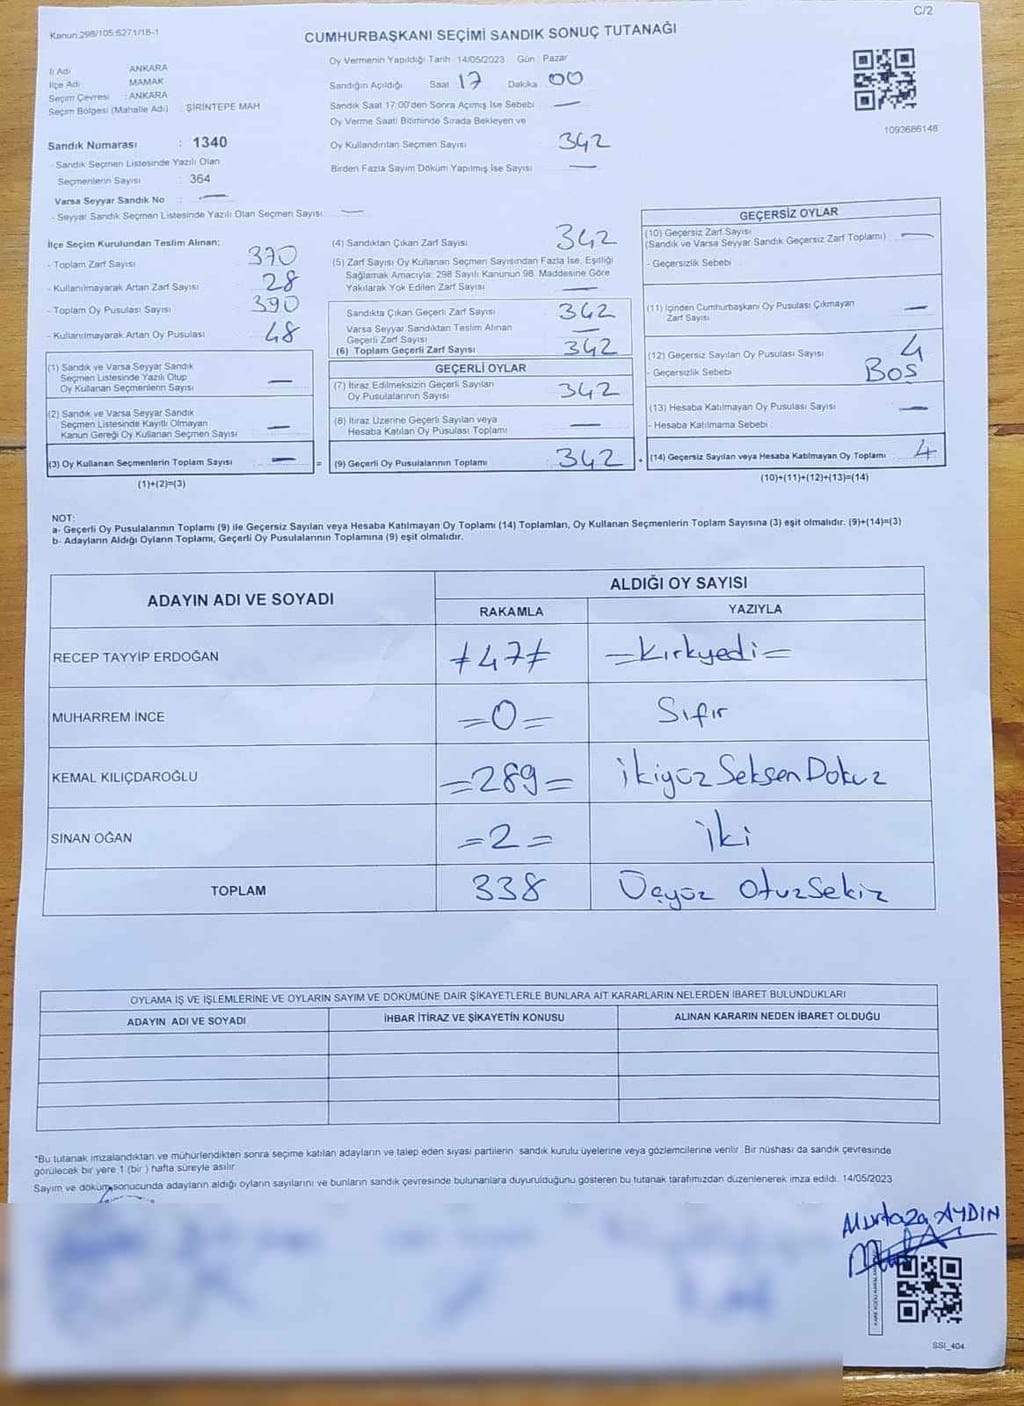 C/2
Kanun:298/105:6271/18-1
CUMHURBAŞKANI SEÇİMİ SANDIK SONUÇ TUTANAĞI
İl Adı ANKARA
İlçe Adı MAMAK
Seçim Çevresi : ANKARA
Seçim Bölgesi (Mahalle Adı) ŞİRİNTEPE MAH
Oy Vermenin Yapıldığı Tarih 14/05/2023 Gün Pazar
Sandığın Açıldığı Saat 17 Dakika 00
Sandık Saat 17:00'den Sonra Açılmış İse Sebebi —
Oy Verme Saati Bitiminde Sırada Bekleyen ve
Oy Kullandırılan Seçmen Sayısı 342
Birden Fazla Sayım Döküm Yapılmış İse Sayısı —
1093686148
Sandık Numarası : 1340
- Sandık Seçmen Listesinde Yazılı Olan
Seçmenlerin Sayısı : 364
Varsa Seyyar Sandık No : —
- Seyyar Sandık Seçmen Listesinde Yazılı Olan Seçmen Sayısı —
İlçe Seçim Kurulundan Teslim Alınan:
- Toplam Zarf Sayısı 370
- Kullanılmayarak Artan Zarf Sayısı 28
- Toplam Oy Pusulası Sayısı 390
- Kullanılmayarak Artan Oy Pusulası 48
(1) Sandık ve Varsa Seyyar Sandık
Seçmen Listesinde Yazılı Olup
Oy Kullanan Seçmenlerin Sayısı —
(2) Sandık ve Varsa Seyyar Sandık
Seçmen Listesinde Kayıtlı Olmayan
Kanun Gereği Oy Kullanan Seçmen Sayısı —
(3) Oy Kullanan Seçmenlerin Toplam Sayısı — =
(1)+(2)=(3)
(4) Sandıktan Çıkan Zarf Sayısı 342
(5) Zarf Sayısı Oy Kullanan Seçmen Sayısından Fazla İse, Eşitliği
Sağlamak Amacıyla; 298 Sayılı Kanunun 98. Maddesine Göre
Yakılarak Yok Edilen Zarf Sayısı —
Sandıkta Çıkan Geçerli Zarf Sayısı 342
Varsa Seyyar Sandıktan Teslim Alınan
Geçerli Zarf Sayısı —
(6) Toplam Geçerli Zarf Sayısı 342
GEÇERLİ OYLAR
(7) İtiraz Edilmeksizin Geçerli Sayılan
Oy Pusulalarının Sayısı 342
(8) İtiraz Üzerine Geçerli Sayılan veya
Hesaba Katılan Oy Pusulası Toplamı —
(9) Geçerli Oy Pusulalarının Toplamı 342
GEÇERSİZ OYLAR
(10) Geçersiz Zarf Sayısı
(Sandık ve Varsa Seyyar Sandık Geçersiz Zarf Toplamı) —
- Geçersizlik Sebebi
(11) İçinden Cumhurbaşkanı Oy Pusulası Çıkmayan
Zarf Sayısı —
(12) Geçersiz Sayılan Oy Pusulası Sayısı 4
- Geçersizlik Sebebi Boş
(13) Hesaba Katılmayan Oy Pusulası Sayısı —
- Hesaba Katılmama Sebebi
(14) Geçersiz Sayılan veya Hesaba Katılmayan Oy Toplamı 4
(10)+(11)+(12)+(13)=(14)
NOT:
a- Geçerli Oy Pusulalarının Toplamı (9) ile Geçersiz Sayılan veya Hesaba Katılmayan Oy Toplamı (14) Toplamları, Oy Kullanan Seçmenlerin Toplam Sayısına (3) eşit olmalıdır. (9)+(14)=(3)
b- Adayların Aldığı Oyların Toplamı, Geçerli Oy Pusulalarının Toplamına (9) eşit olmalıdır.
ADAYIN ADI VE SOYADI ALDIĞI OY SAYISI
RAKAMLA YAZIYLA
RECEP TAYYİP ERDOĞAN ≠47≠ =Kırkyedi=
MUHARREM İNCE =0= Sıfır
KEMAL KILIÇDAROĞLU =289= İkiyüz Seksen Dokuz
SİNAN OĞAN =2= İki
TOPLAM 338 Üçyüz OtuzSekiz
OYLAMA İŞ VE İŞLEMLERİNE VE OYLARIN SAYIM VE DÖKÜMÜNE DAİR ŞİKAYETLERLE BUNLARA AİT KARARLARIN NELERDEN İBARET BULUNDUKLARI
ADAYIN ADI VE SOYADI İHBAR İTİRAZ VE ŞİKAYETİN KONUSU ALINAN KARARIN NEDEN İBARET OLDUĞU
*Bu tutanak imzalandıktan ve mühürlendikten sonra seçime katılan adayların ve talep eden siyasi partilerin sandık kurulu üyelerine veya gözlemcilerine verilir. Bir nüshası da sandık çevresinde
görülecek bir yere 1 (bir) hafta süreyle asılır.
Sayım ve döküm sonucunda adayların aldığı oyların sayılarını ve bunların sandık çevresinde bulunanlara duyurulduğunu gösteren bu tutanak tarafımızdan düzenlenerek imza edildi. 14/05/2023
Murtaza AYDIN
SSI_404